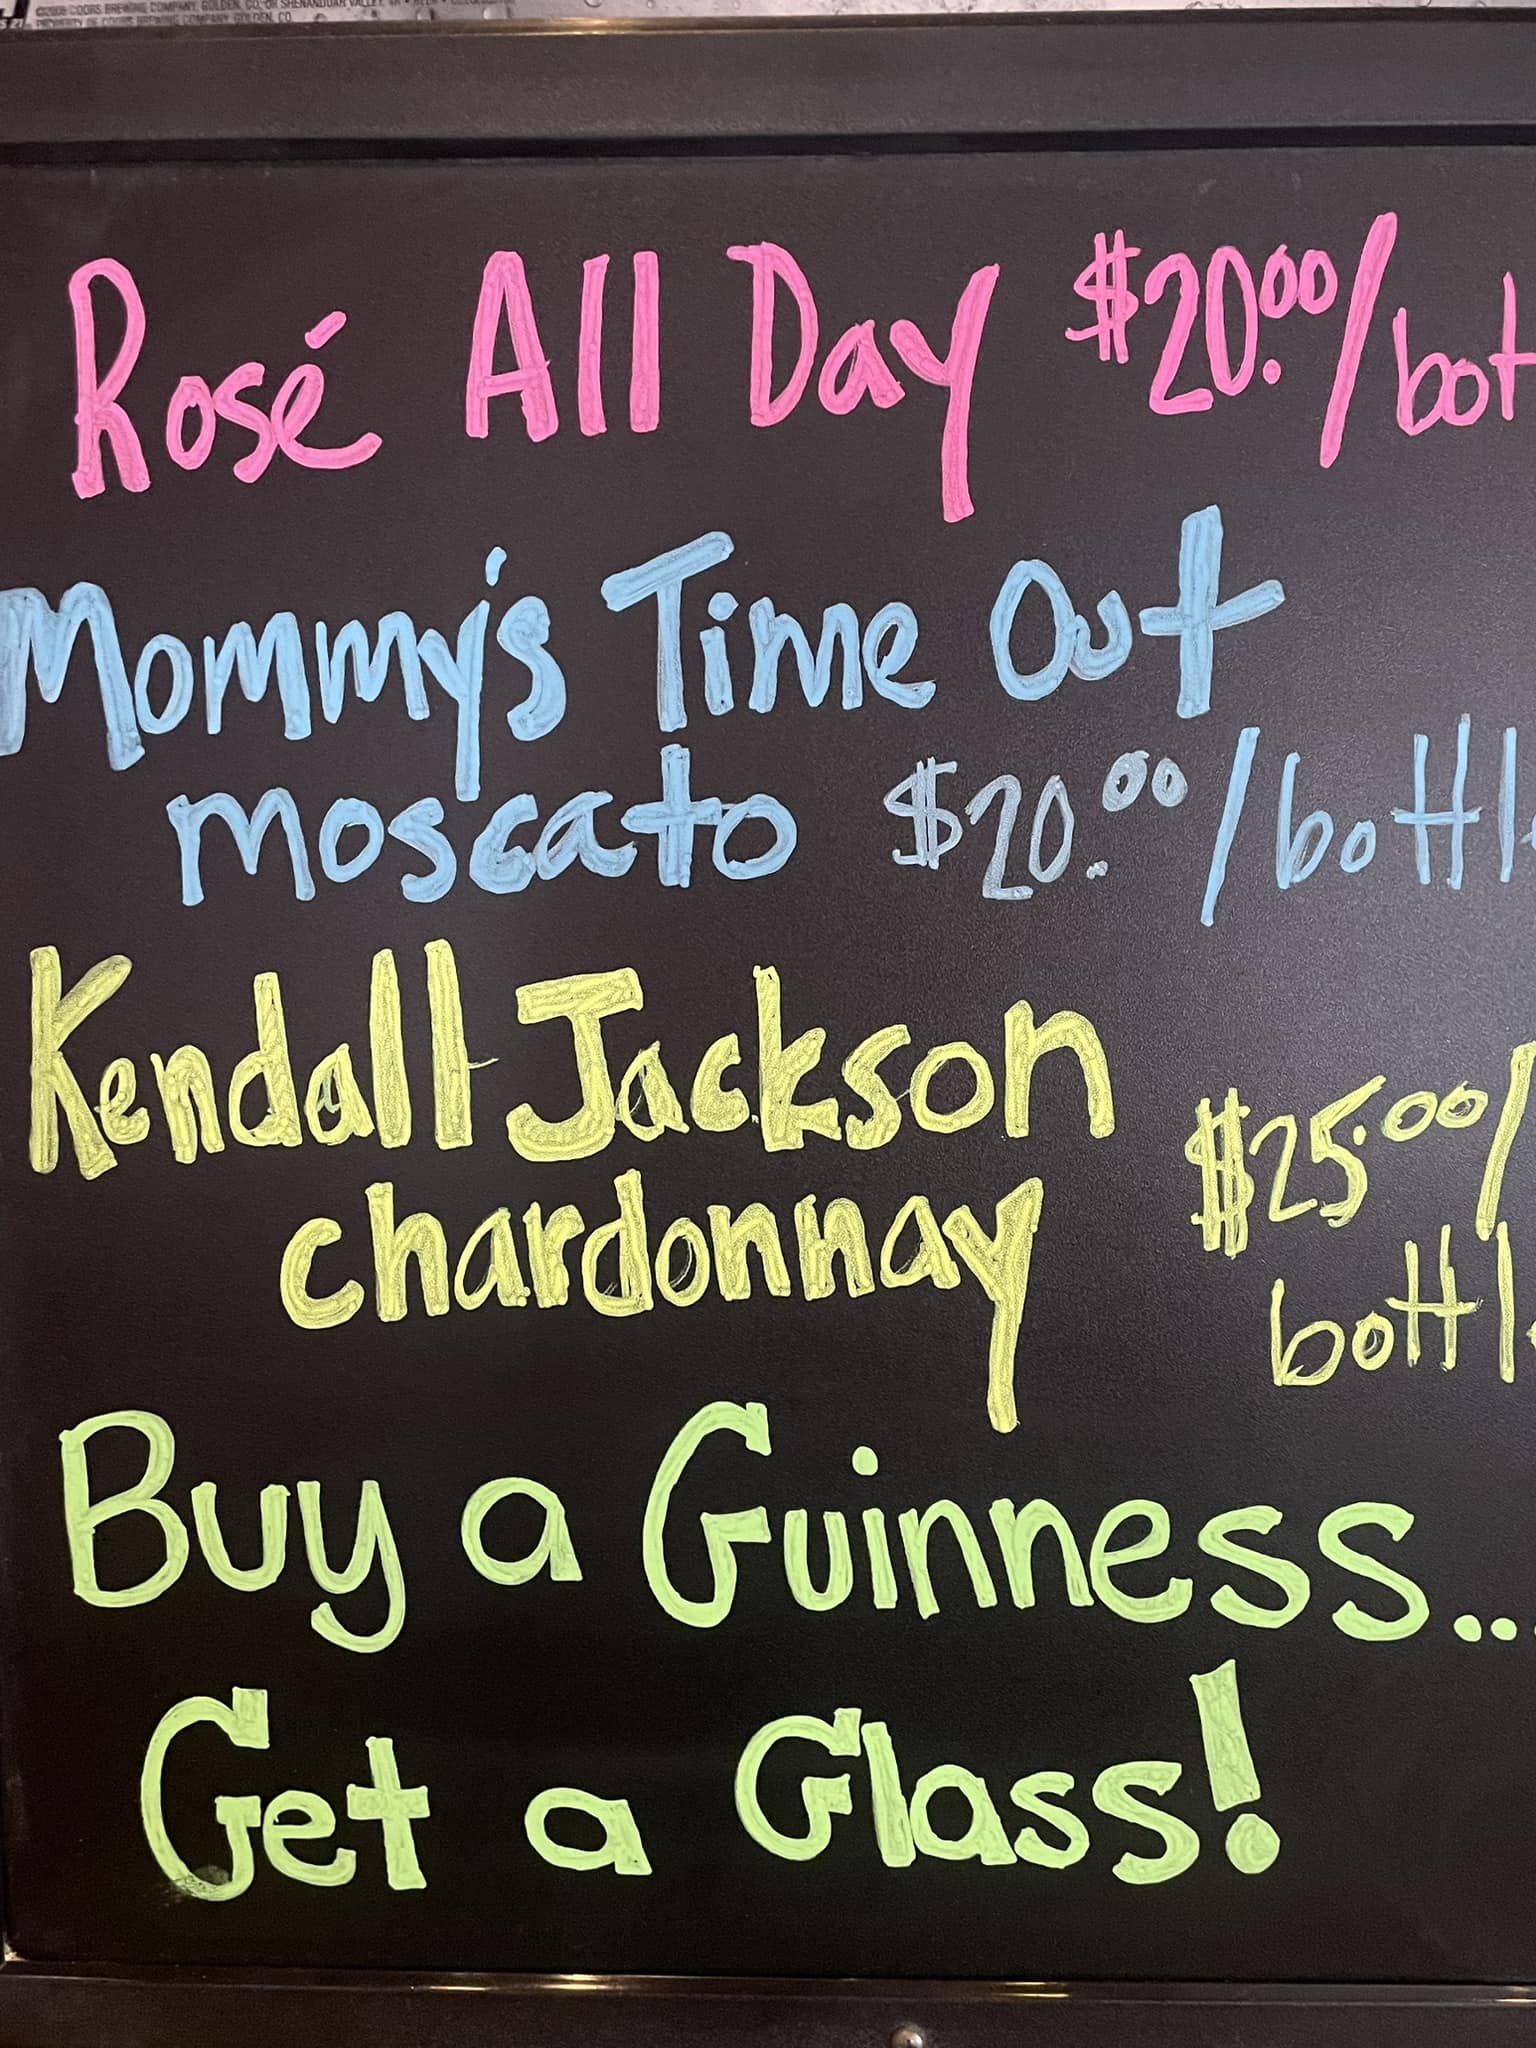 ©2008 COORS BREWING COMPANY, GOLDEN, CO, OR SHENANDOAH VALLEY, VA • BEER •
PROPERTY OF COORS BREWING COMPANY, GOLDEN, CO
Rosé All Day $20.00/bot
Mommy's Time Out
moscato $20.00/bottle
Kendall Jackson
chardonnay $25.00/
bottle
Buy a Guinness...
Get a Glass!